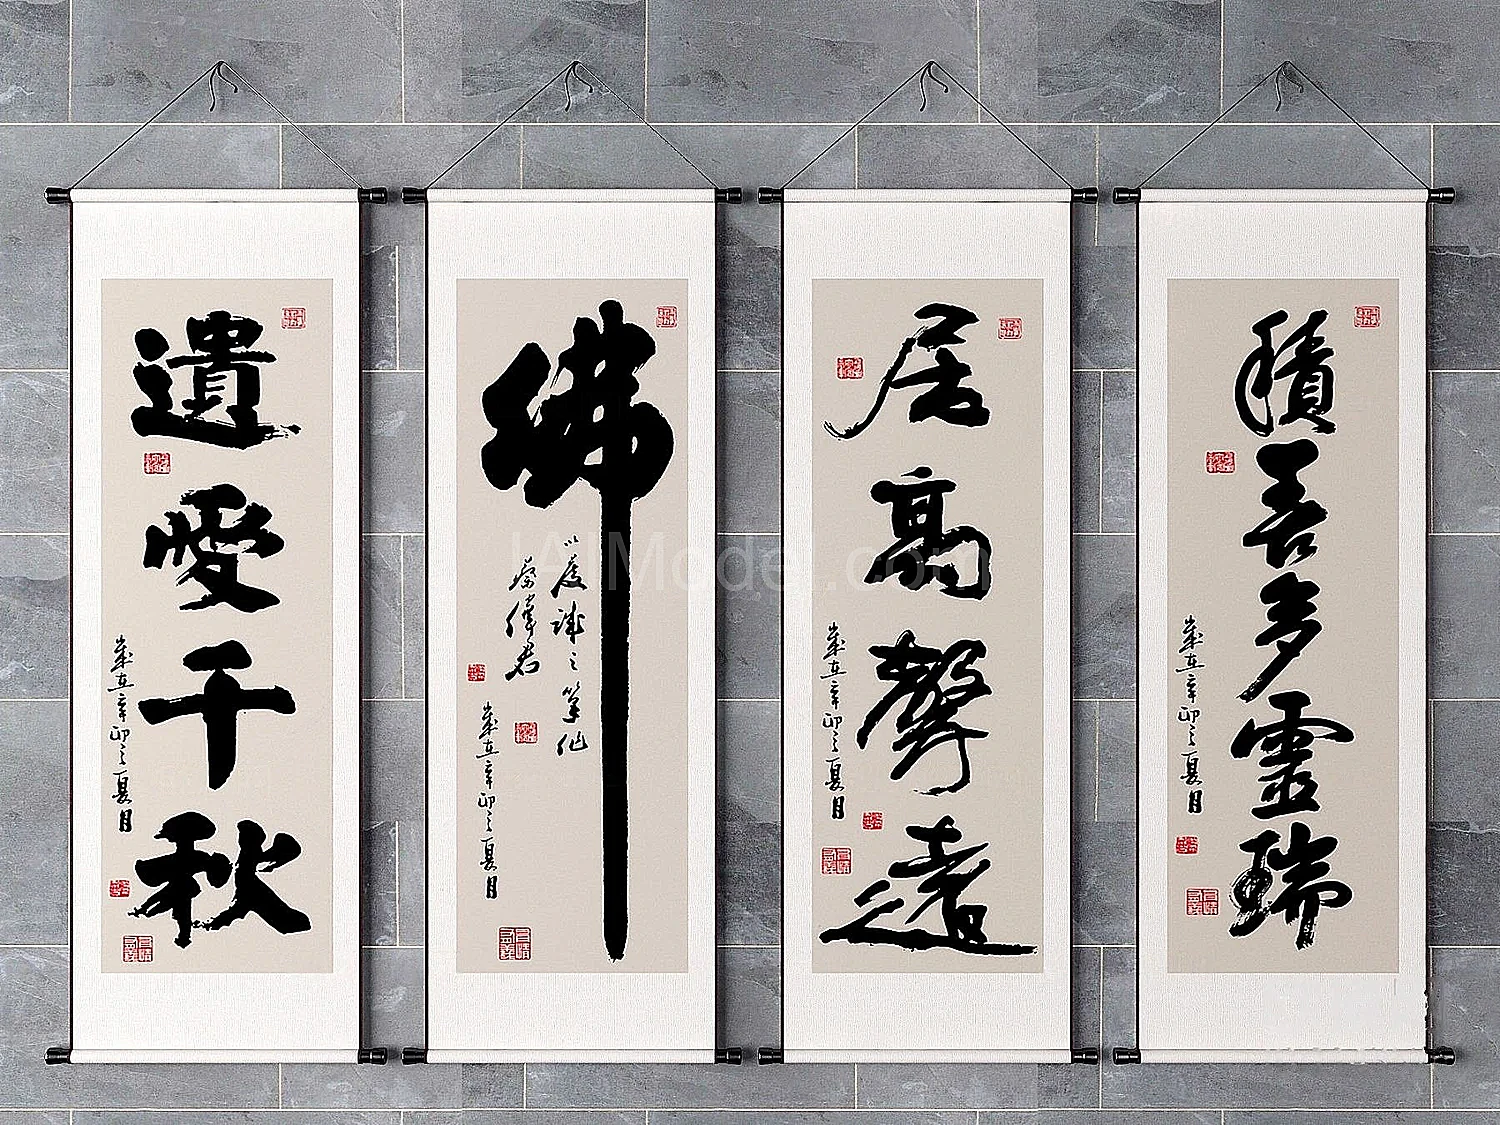 遺愛千秋
歲在辛卯之夏月
佛
以虔誠之筆作
歲在辛卯之夏月
居高聲遠
歲在辛卯之夏月
積善多靈瑞
歲在辛卯之夏月